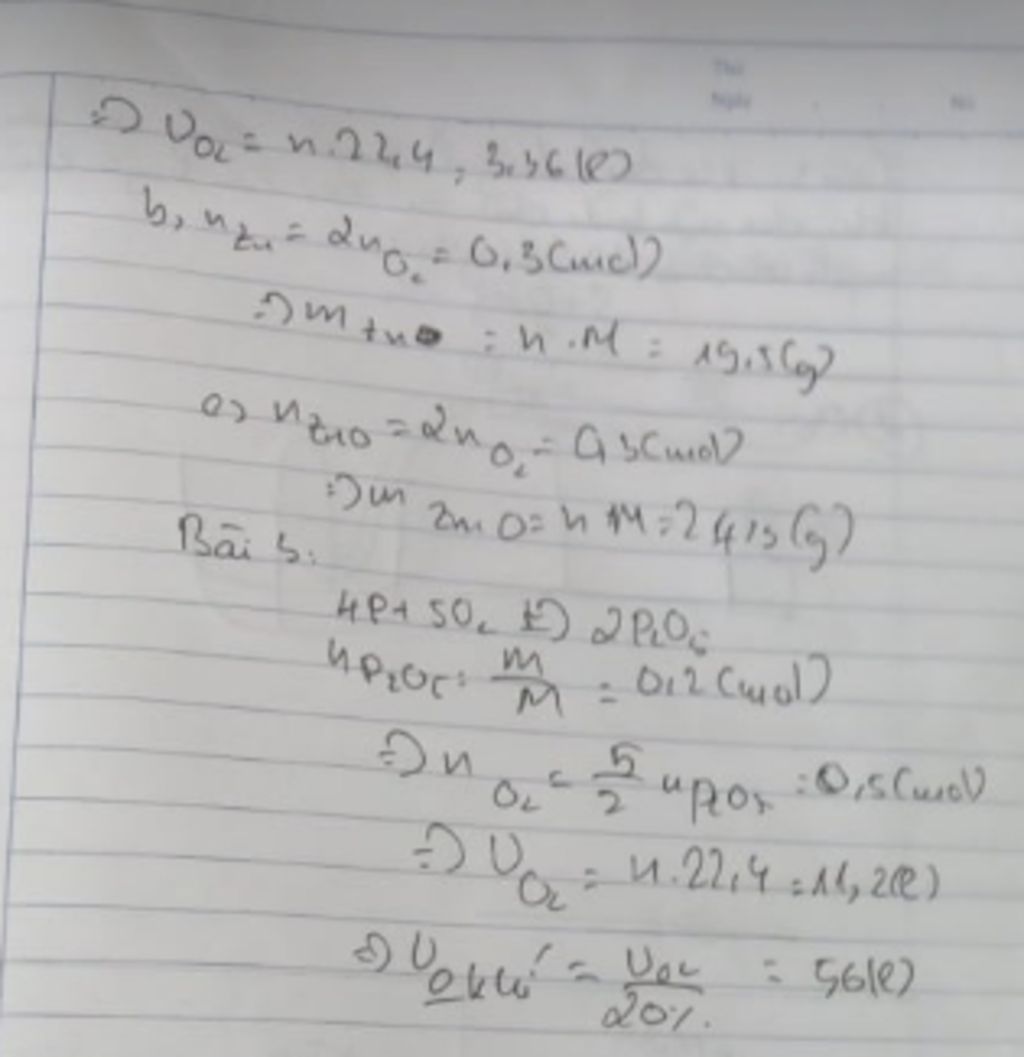 Thứ
Ngày No
=> VO2 = n.22,4 = 3,36(l)
b, nZn = 2nO2 = 0,3(mol)
=> mZn = n.M = 19,5(g)
c, nZnO = 2nO2 = 0,3(mol)
=> m ZnO = n M = 24,3(g)
Bài 5:
4P + 5O2 t=> 2P2O5
nP2O5 = m/M = 0,2(mol)
=> nO2 = 5/2 nP2O5 = 0,5(mol)
=> VO2 = n.22,4 = 11,2(l)
=> Vkk = VO2/20% = 56(l)